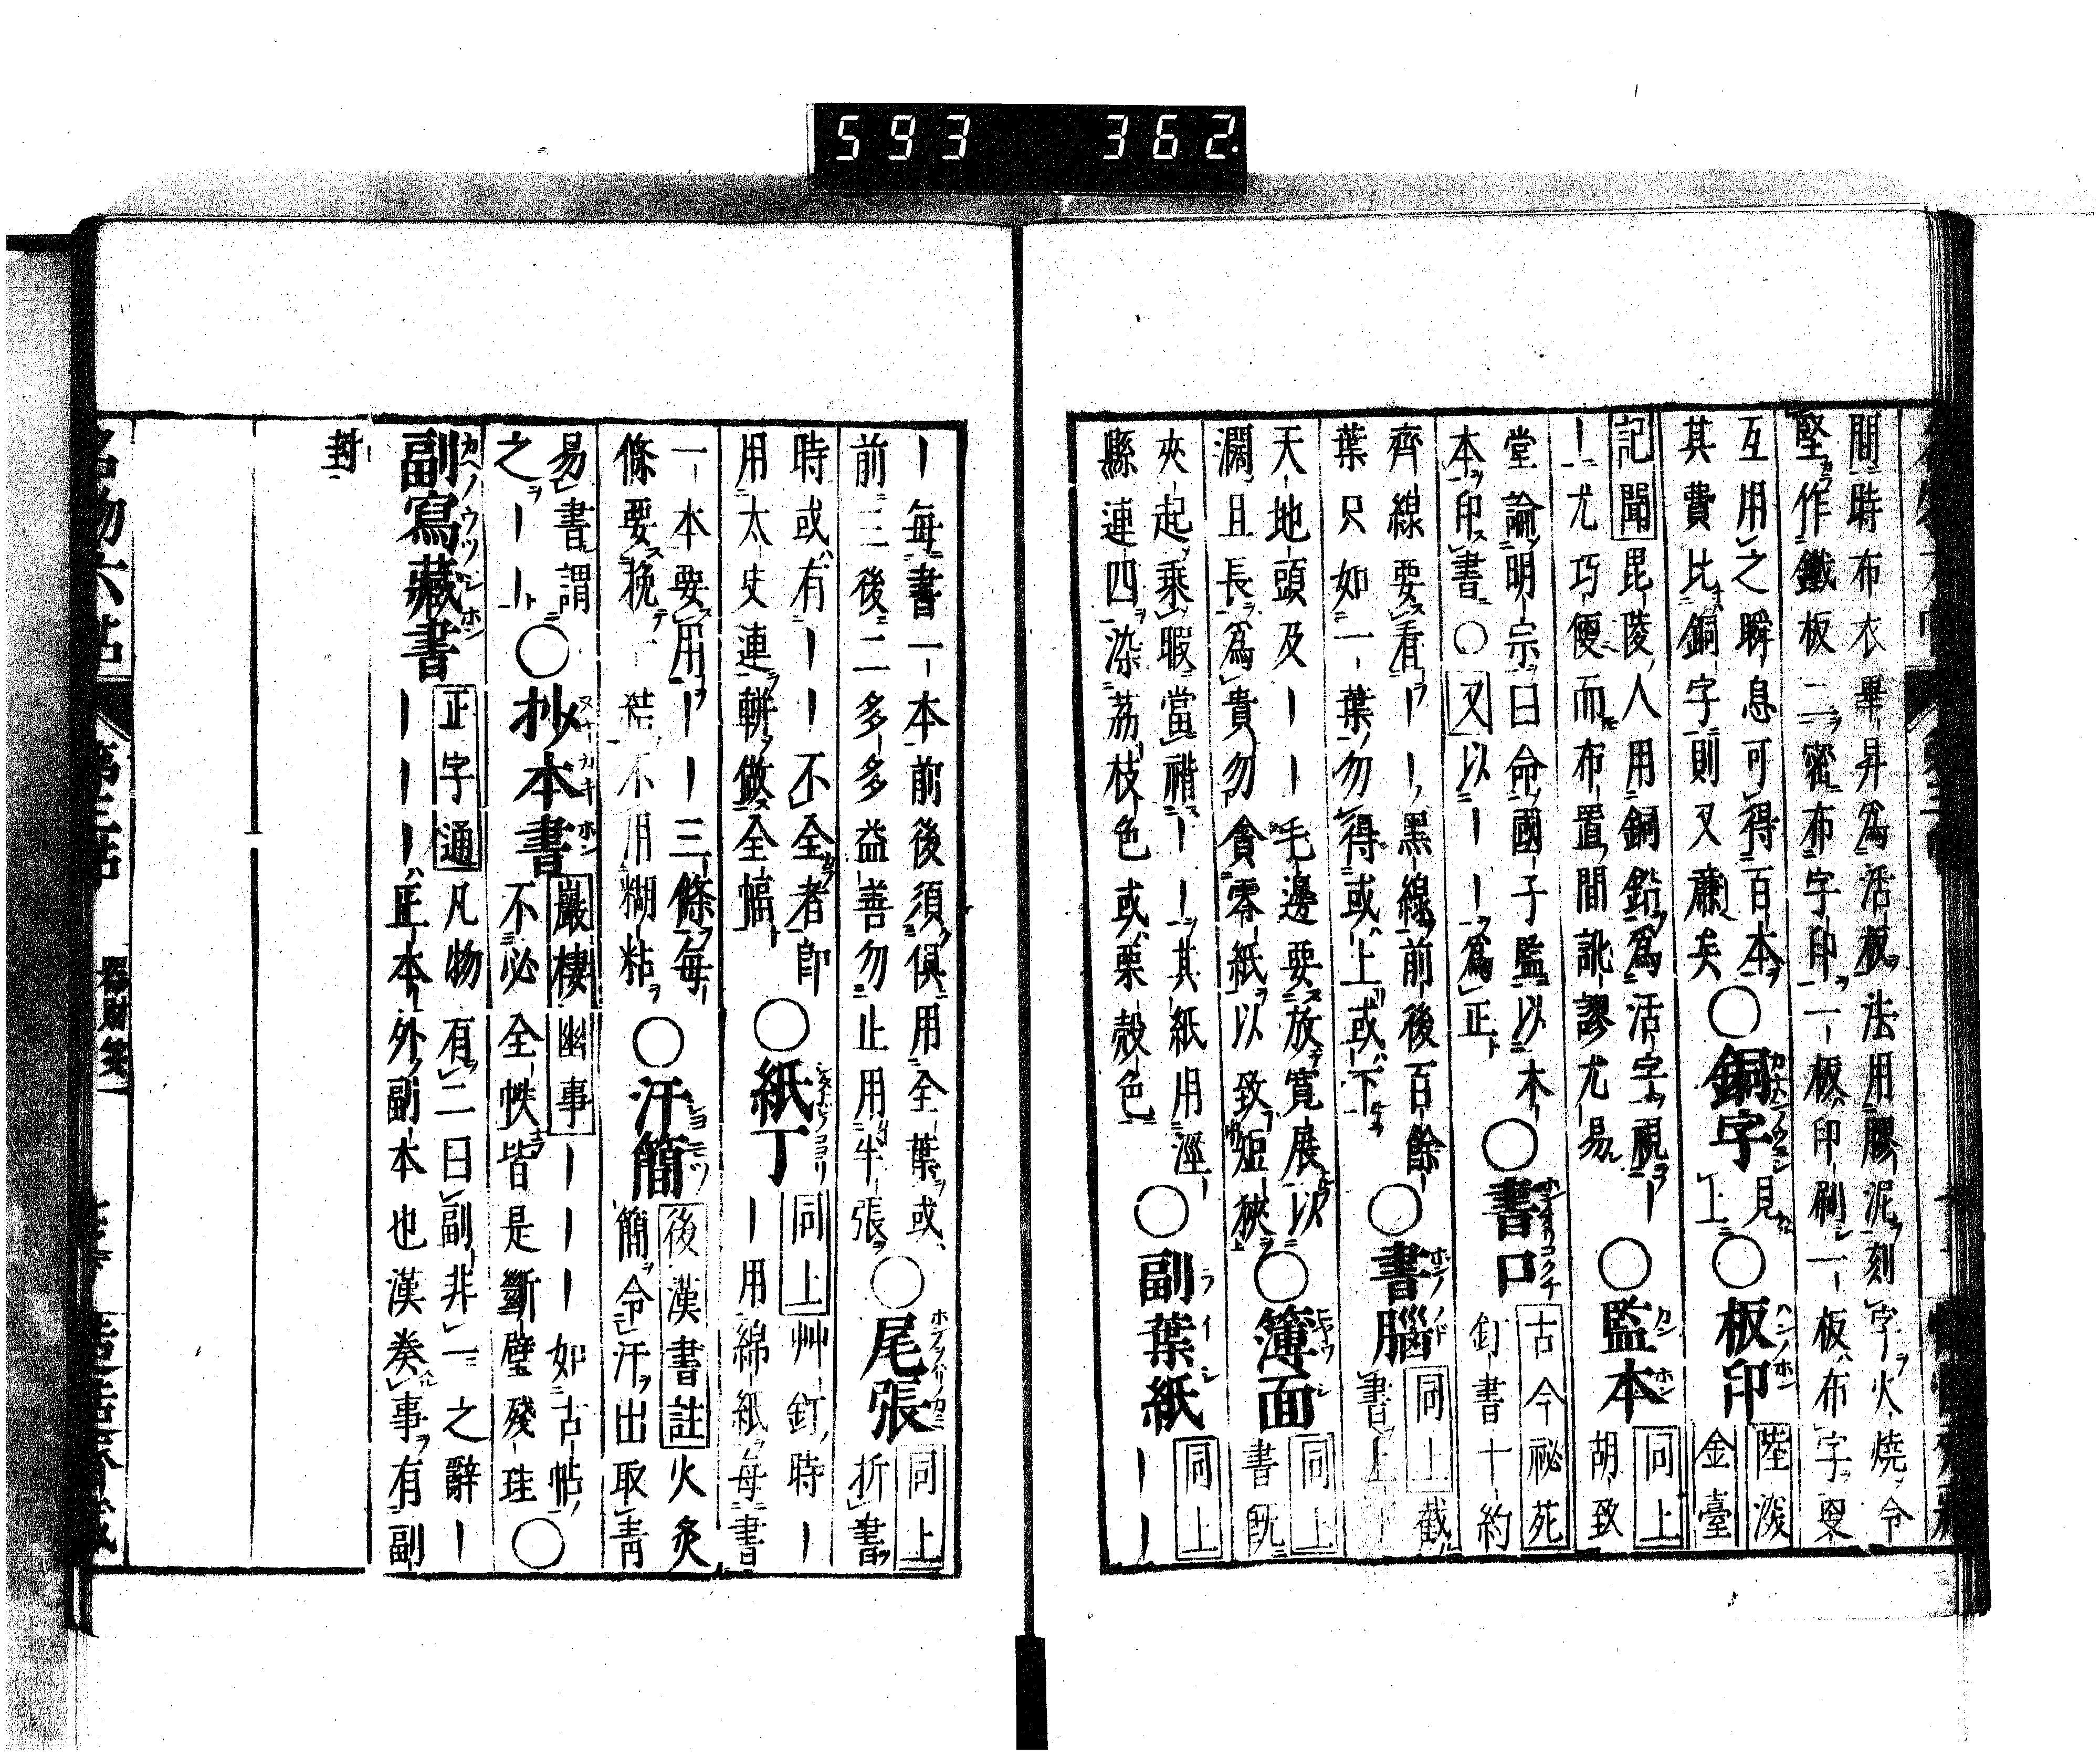 593 362.
間時布衣畢昇為活板法用膠泥刻字火燒令
堅作鐵板二密布字印一板印刷一板布字更
互用之瞬息可得百本○銅字見○板印陸深
其費比銅字則又廉矣 上 金臺
記聞毘陵人用銅鉛為活字視ー○監本同上
ー尤巧便而布置間訛謬尤易 胡致
堂論明宗曰命國子監以木○書口古今祕苑
本印書○又以ーー為正 釘書十約
齊線要看ーー黑線前後百餘○書腦同上截
葉只如一葉勿得或上或下 書
天地頭及ーー毛邊要放寬展以○簿面同上
濶且長為貴勿貪零紙以致短狹 書既
夾起乘暇當褙ーー其紙用溼○副葉紙同上
縣連四染荔枝色或栗殼色 ーー
ー每書一本前後須俱用全葉或○尾張同上
前三後二多多益善勿止用半張 折書
時或有ーー不全者即○紙丁同上艸釘時ー
用太史連輧做全幅 ー用綿紙每書
一本要用ーー三條每○汗簡後漢書註火炙
條要挽一結不用糊粘 簡令汗出取青
易書謂○抄本書巖棲幽事ーーー如古帖
之ーー 不必全帙皆是斷璧殘珪○
副寫藏書正字通凡物有二曰副非一之辭ー
ーーー正本外副本也漢奏事有副
封
名物六帖 第三帖 器財箋